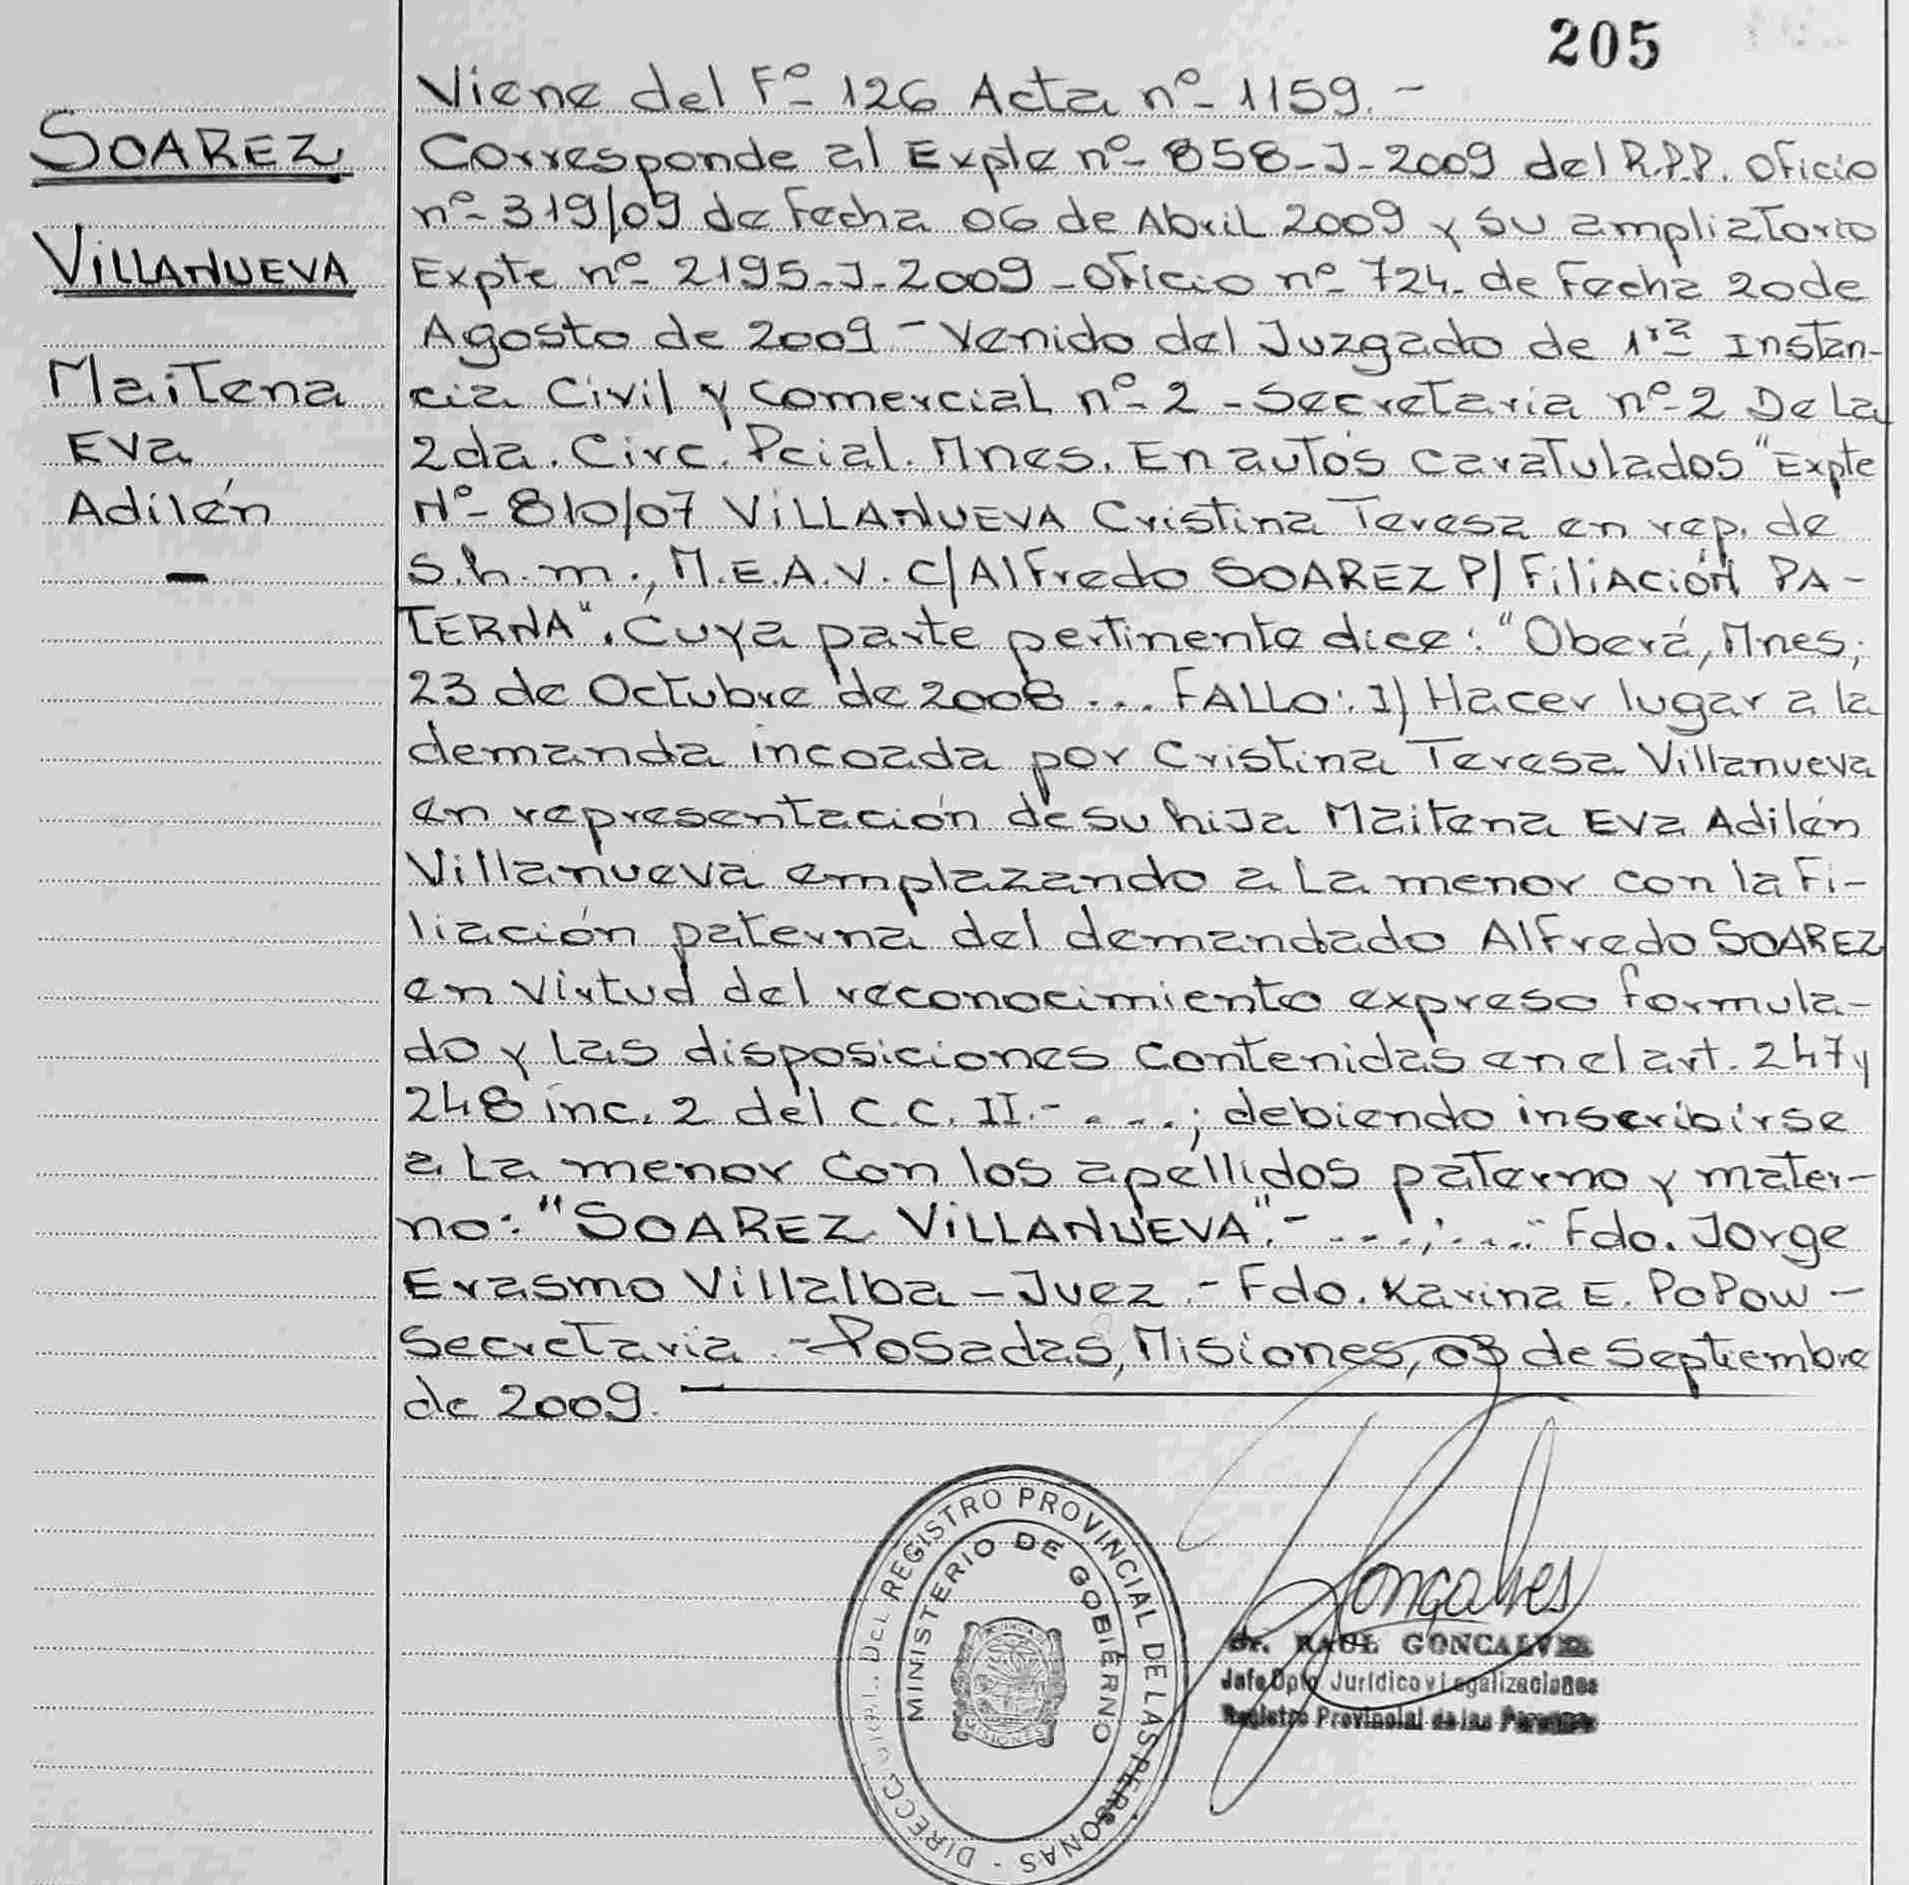 205
SOAREZ
VILLANUEVA
Maitena
Eva
Adilén
-
Viene del Fº- 126 Acta nº- 1159.-
Corresponde al Expte nº- 858-J-2009 del R.P.P. Oficio
nº- 319/09 de Fecha 06 de Abril 2009 y su ampliatorio
Expte nº- 2195-J-2009 - Oficio nº- 724- de Fecha 20 de
Agosto de 2009 - Venido del Juzgado de 1ra Instan-
cia Civil y Comercial nº- 2 - Secretaria nº- 2 De La
2da. Circ. Pcial. Mnes. En autos caratulados "Expte
Nº- 810/07 VILLANUEVA Cristina Teresa en rep. de
s.h.m., M.E.A.V. C/ Alfredo SOAREZ P/ Filiación PA-
TERNA". Cuya parte pertinente dice: "Oberá, Mnes;
23 de Octubre de 2008 ... FALLO: I) Hacer lugar a la
demanda incoada por Cristina Teresa Villanueva
en representación de su hija Maitena Eva Adilén
Villanueva emplazando a la menor con la Fi-
liación paterna del demandado Alfredo SOAREZ
en virtud del reconocimiento expreso formula-
do y las disposiciones contenidas en el art. 247 y
248 inc. 2 del C.C. II.- ....; debiendo inscribirse
a la menor con los apellidos paterno y mater-
no: "SOAREZ VILLANUEVA".- ...;....- Fdo. Jorge
Erasmo Villalba - Juez.- Fdo. Karina E. Popow -
Secretaria.- Posadas, Misiones, 03 de Septiembre
de 2009.
DEL REGISTRO PROVINCIAL DE LAS PERSONAS -
MINISTERIO DE GOBIERNO
Goncalves
Dr. RAUL GONCALVES
Jefe Dpto. Jurídico y Legalizaciones
Registro Provincial de las Personas